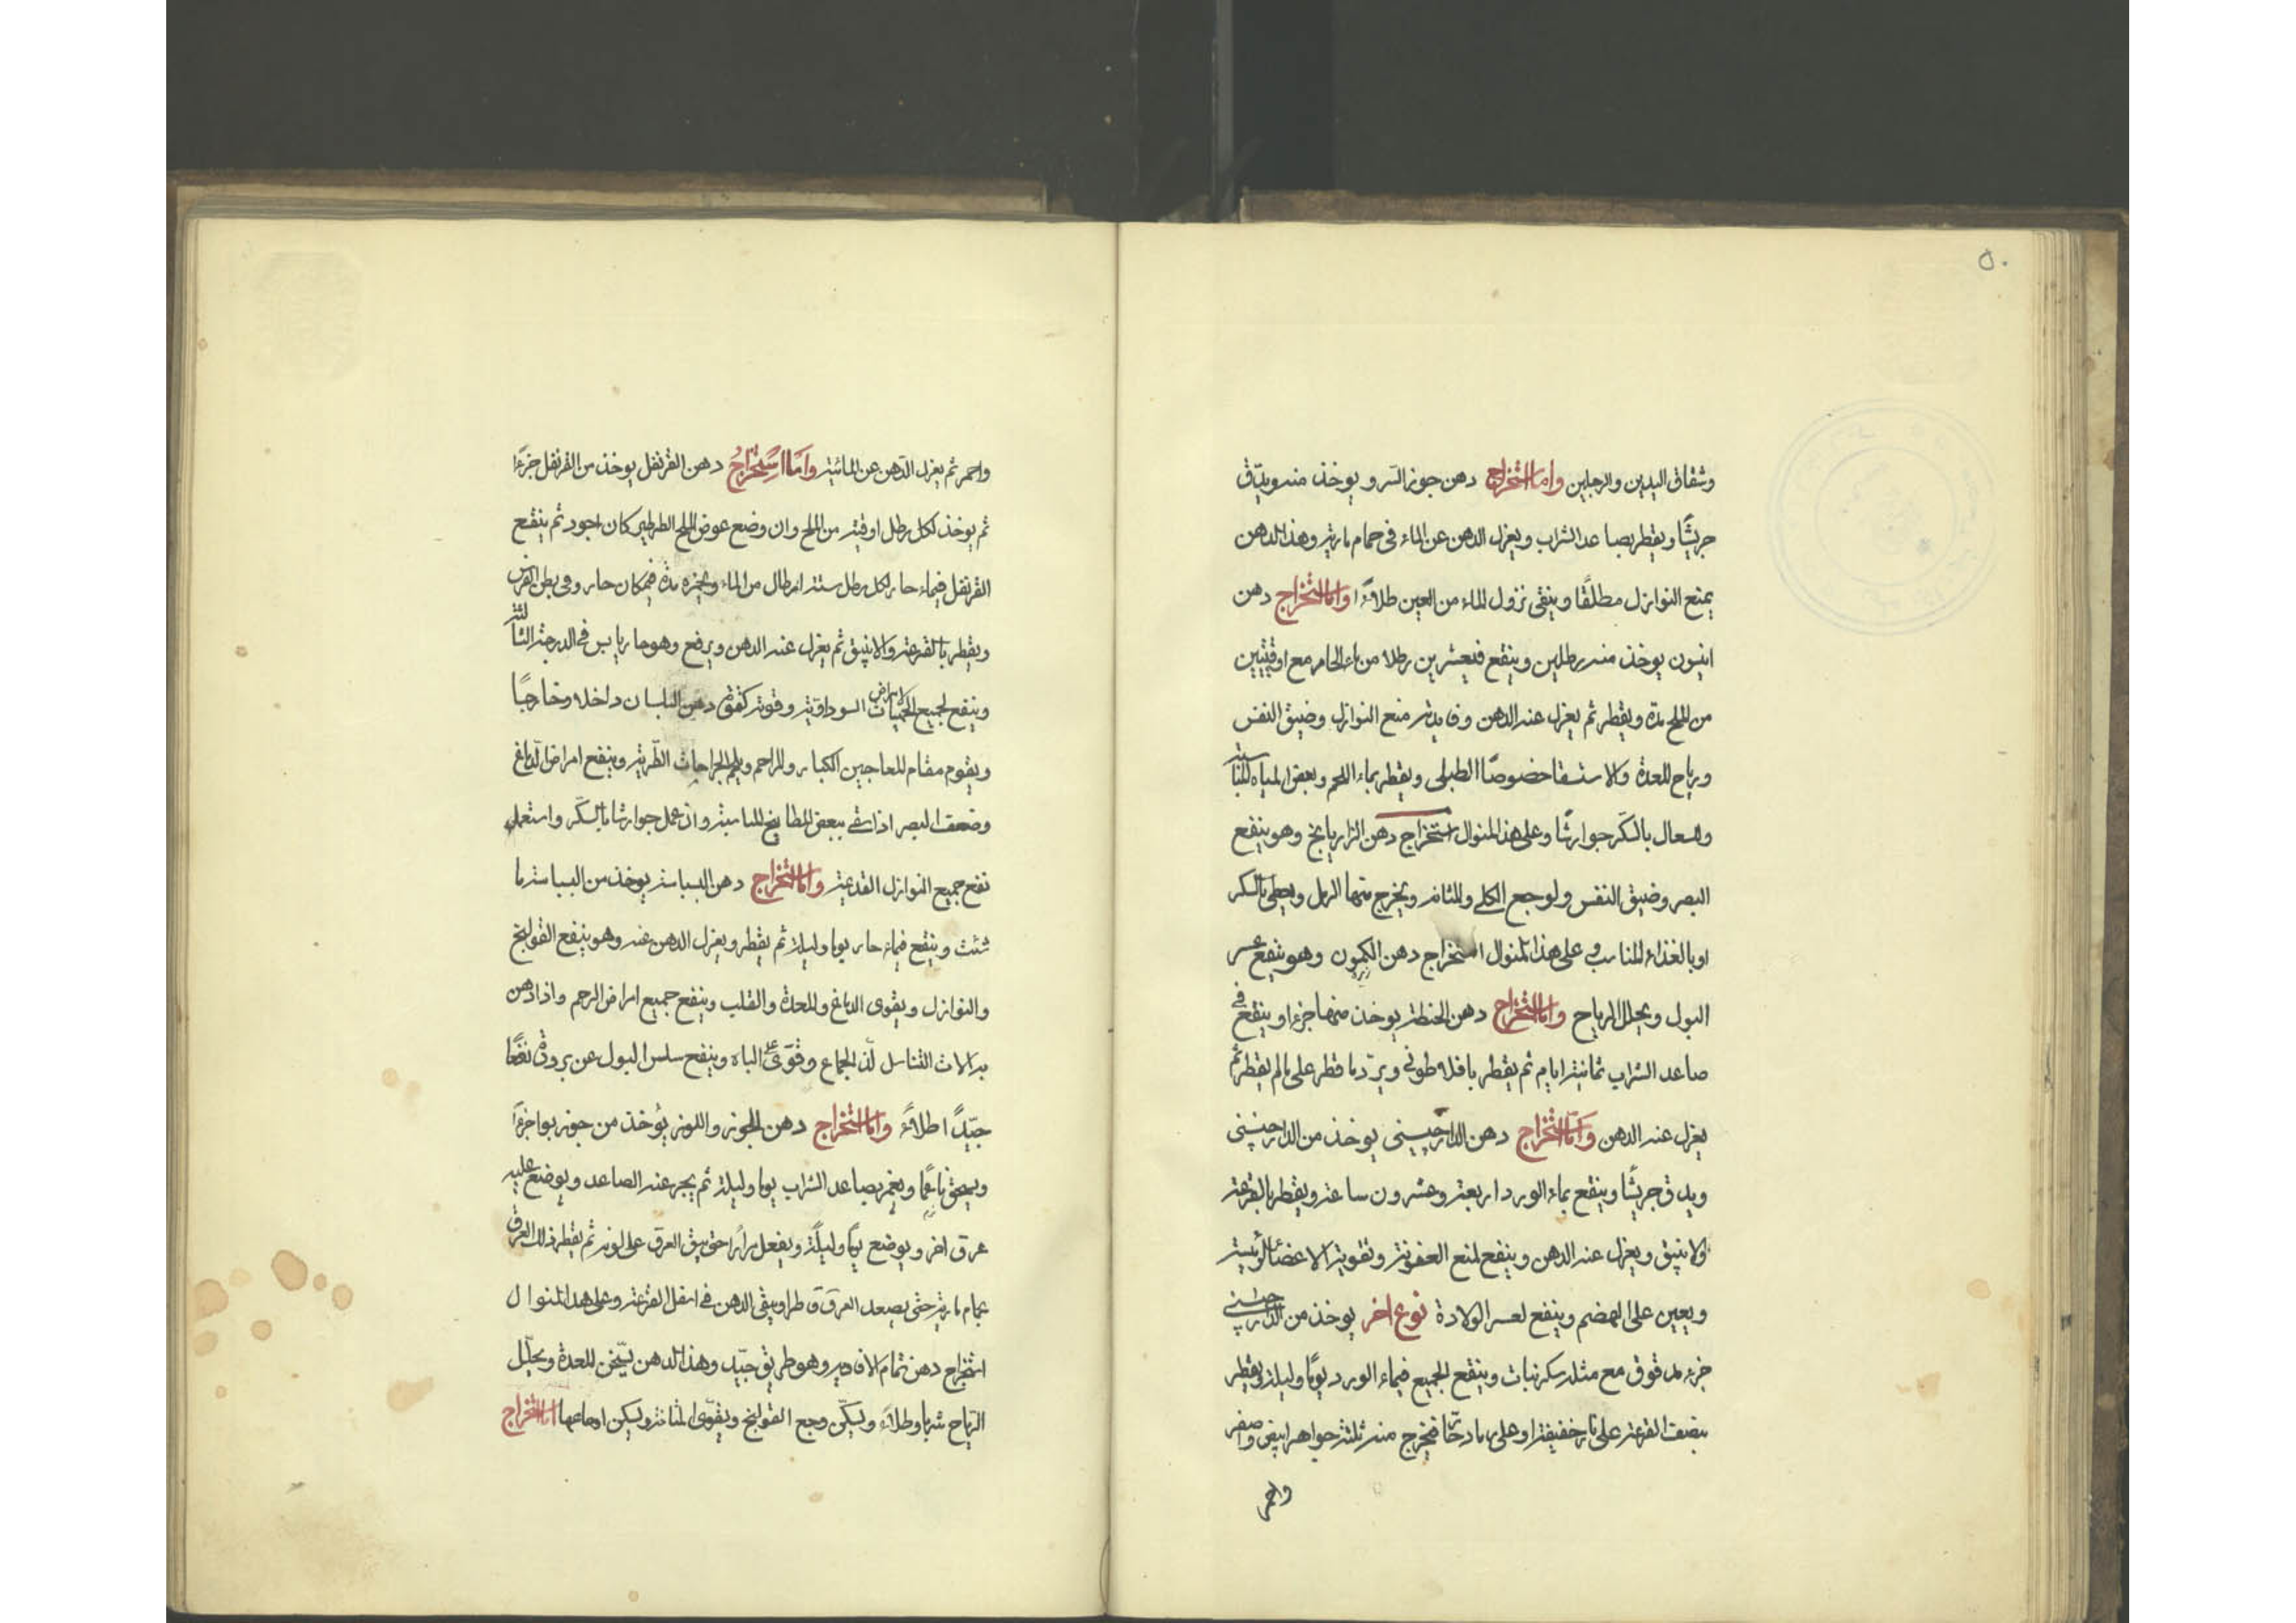 ٥٠
وشقاق اليدين والرجلين واما استخراج دهن جوز السرو يوخذ منه ويدق
جريشًا ويقطر بصاعد الشراب ويعزل الدهن عن الماء فى حمام مارية وهذا الدهن
يمنع النوازل مطلقًا وينقى نزول الماء من العين طلاءً واما استخراج دهن
انيسون يوخذ منه رطلين وينقع فى عشرين رطلا من ماء الحار مع اوقيتين
من الملح مدة ويقطر ثم يعزل عنه الدهن وفايدته منع النوازل وضيق النفس
ورياح المعدة والاستسقا خصوصًا الطبلى ويقطر بماء اللحم وبعض المياه المناسبة
والسعال بالسكر جوارشًا وعلى هذا المنوال استخراج دهن الرازيانج وهو ينفع
البصر وضيق النفس ولوجع الكلى والمثانه ويخرج منها الرمل ويعطى بالسكر
او بالغذاء المناسب وعلى هذا المنوال استخراج دهن الكمون وهو ينفع عسر
البول ويحلل الرياح واما استخراج دهن الحنطة يوخذ منها جزءا وينقع فى
صاعد الشراب ثمانية ايام ثم يقطر ويرد ما قطر على مالم يقطر ثم
يعزل عنه الدهن واما استخراج دهن الدارچينى يوخذ من الدارچينى
ويدق جريشًا وينقع بماء الورد اربعة وعشرون ساعة ويقطر بالقرعة
والانبيق ويعزل عنه الدهن وينفع لمنع العفونة وتقوية الاعضاء الرئيسة
ويعين على الهضم وينفع لعسر الولادة نوع اخر يوخذ من الدارچينى
جزء مدقوق مع مثله سكر نبات وينقع الجميع فى ماء الورد يومًا وليلة ويقطر
بنصف القرعة على نار خفيفة او على رماد حار فيخرج منه ثلثة جواهر ابيض واصفر
واحمر
واحمر ثم يعزل الدهن عن المائية واما استخراج دهن القرنفل يوخذ من القرنفل جزءًا
ثم يوخذ لكل رطل اوقية من الملح وان وضع عوض الملح الطرطير كان اجود ثم ينقع
القرنفل فى ماء حار لكل رطل ستة ارطال من الماء ويخمره مدة فى مكان حار وفى بطن الفرس
ويقطر بالقرعة والانبيق ثم يعزل عنه الدهن ويرفع وهو حار يابس فى الدرجة الثالثة
وينفع لجميع الامراض السوداوية وقوته كقوة دهن البلسان داخلا وخارجًا
ويقوم مقام المعاجين الكبار والمراهم ويلحم الجراحات الطرية وينفع امراض الدماغ
وضعف البصر اذا سقى ببعض المطابيخ المناسبة وان عمل جوارشا بالسكر واستعمل
نفع جميع النوازل القديمة واما استخراج دهن البسباسة يوخذ من البسباسة ما
شئت وينقع فى ماء حار يوما وليلة ثم يقطر ويعزل الدهن عنه وهو ينفع القولنج
والنوازل ويقوى الدماغ والمعدة والقلب وينفع جميع امراض الرحم واذا دهن
به الات التناسل لذ الجماع وقوى على الباه وينفع سلس البول عن برودة نفعًا
جيدًا طلاءً واما استخراج دهن الجوز واللوز يؤخذ من جوز بوا جزءًا
ويسحق ناعمًا ويغمر بصاعد الشراب يوما وليلة ثم يجر عنه الصاعد ويوضع عليه
عرق اخر ويوضع يومًا وليلة ويفعل مرارًا حتى يبقى العرق على لونه ثم يقطر ذلك العرق
بحمام مارية حتى يصعد العرق قاطرا ويبقى الدهن فى اسفل القرعة وعلى هذا المنوال
استخراج دهن تمام الافاويه وهو طريق جيد وهذا الدهن يسخن المعدة ويحلل
الرياح شربا وطلاءً ويسكن وجع القولنج ويقوى المثانة ويسكن اوجاعها اما استخراج